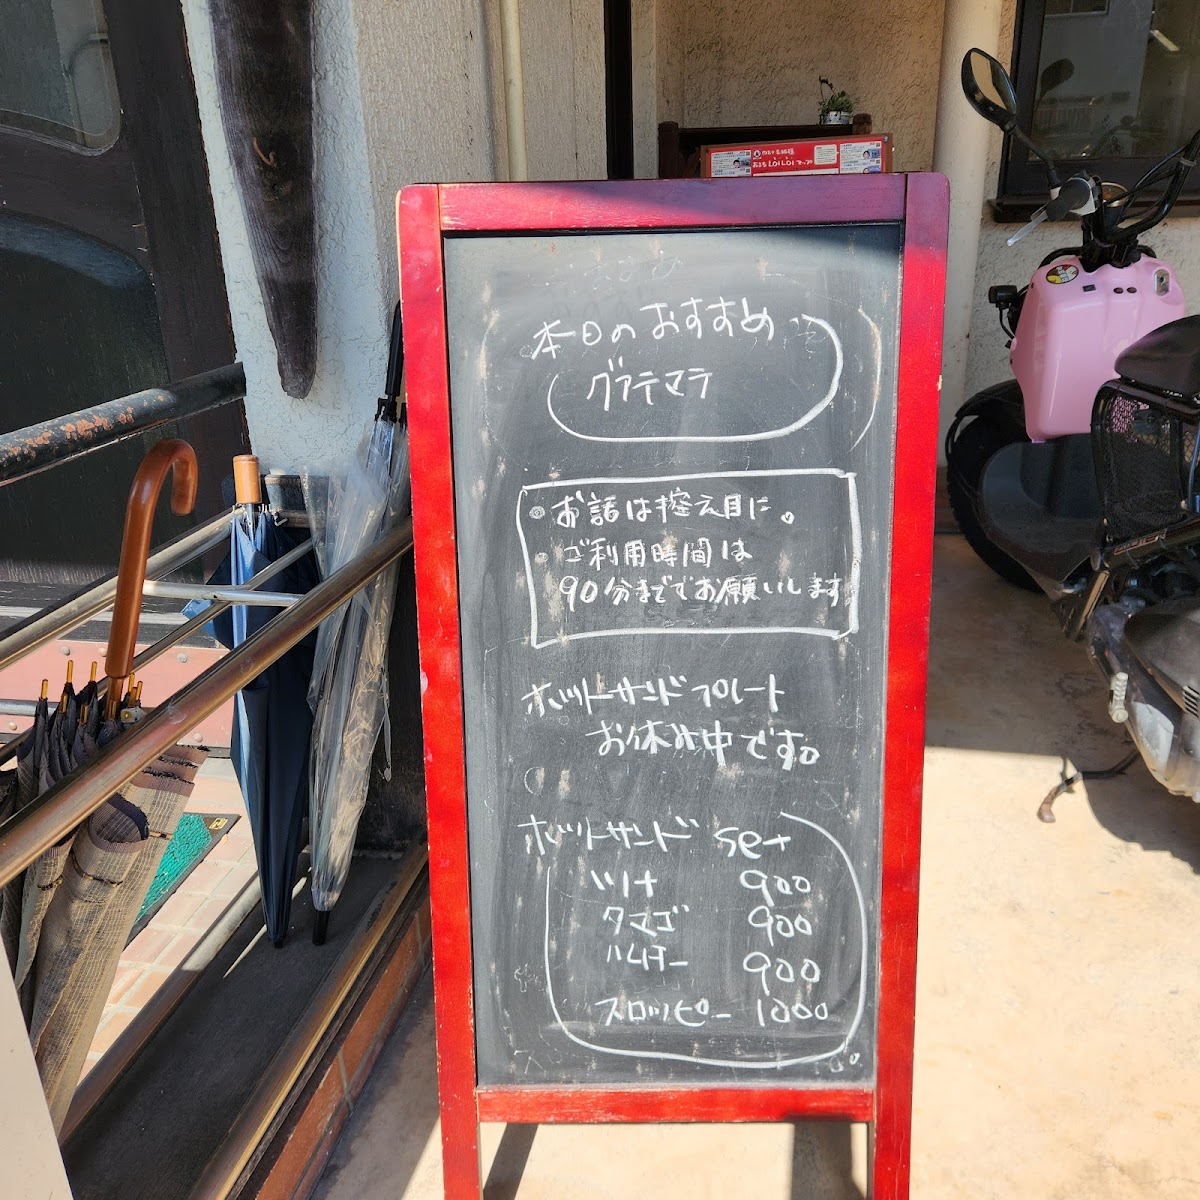 おまち LOI LOI マップ
本日のおすすめ
グラテマラ
お話は控え目に。
ご利用時間は
90分まででお願いします
ホットサンドプレート
お休み中です。
ホットサンド set
ツナ 900
タマゴ 900
ハムチー 900
スロッピー 1000